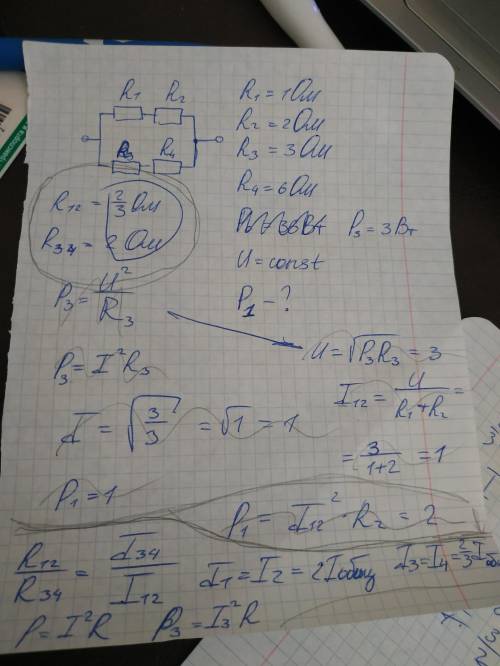 R1 R2
R3 R4
R1 = 1 Ом
R2 = 2 Ом
R3 = 3 Ом
R4 = 6 Ом
P3 = 3 Вт
U = const
P1 - ?
R12 = 2/3 Ом
R34 = 2 Ом
P3 = U²/R3
U = √P3R3 = 3
P3 = I²R3
I12 = U/(R1+R2) =
= 3/(1+2) = 1
I = √(3/3) = √1 = 1
P1 = 1
P1 = I12² · R2 = 2
R12/R34 = I34/I12
I1 = I2 = 2Iобщ
I3 = I4 = 2/3 Iоб
P = I²R
P3 = I3²R